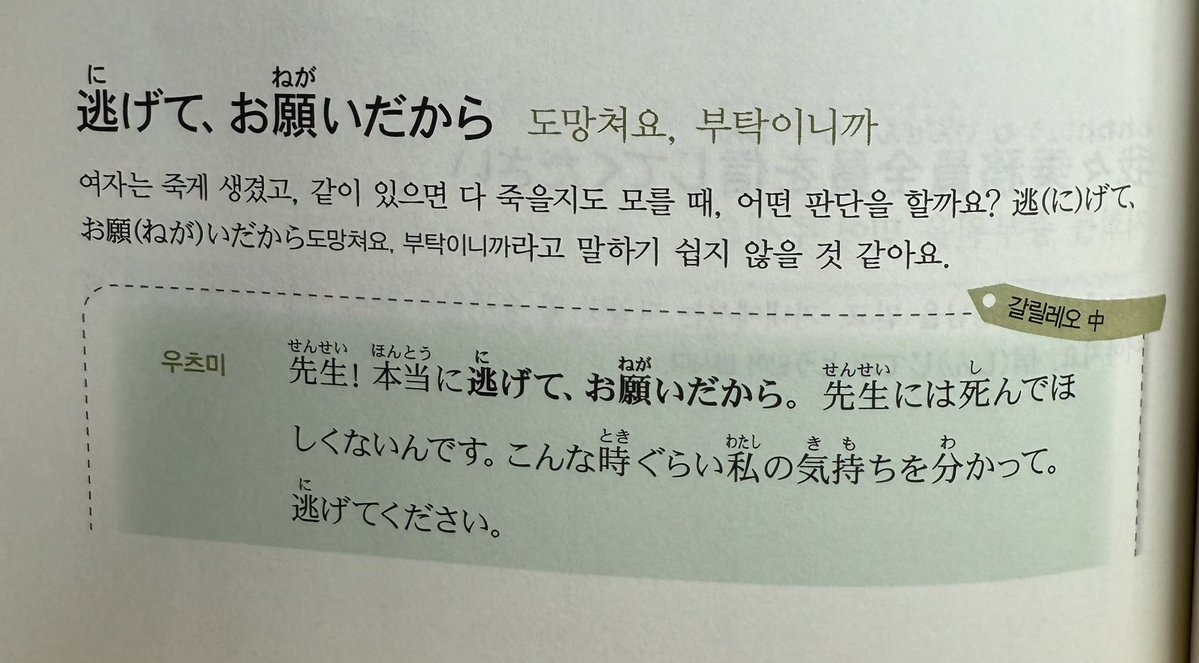 に ねが
逃げて、お願いだから 도망쳐요, 부탁이니까
여자는 죽게 생겼고, 같이 있으면 다 죽을지도 모를 때, 어떤 판단을 할까요? 逃(に)げて、
お願(ねが)いだから도망쳐요, 부탁이니까라고 말하기 쉽지 않을 것 같아요.
갈릴레오 中
せんせい ほんとう に ねが せんせい し
우츠미 先生! 本当に逃げて、お願いだから。先生には死んでほ
とき わたし き も わ
しくないんです。こんな時ぐらい私の気持ちを分かって。
に
逃げてください。